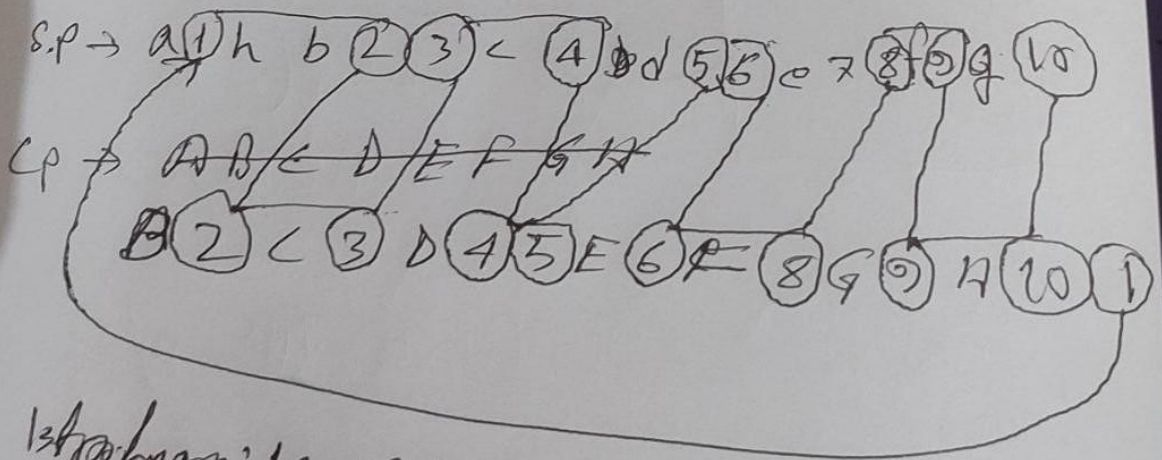 S.P → a 1 h b 2 3 c 4 d 5 6 e 7 8 f 9 g 10
CP → A B C D E F G H
B 2 C 3 D 4 5 E 6 F 8 G 9 H 10 1